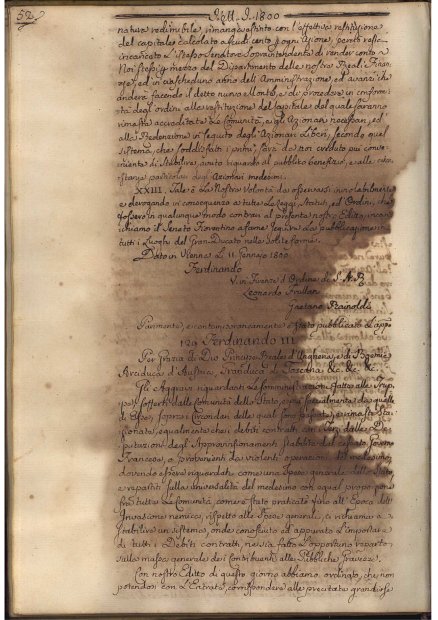 52.
1800
natura redimibile, rimanga estinto con l'effettiva restituzione
del capitale calcolato a scudi cento per ogni Azione, perciò resta
incaricato l'istesso Senatore Soprintendente di render conto a
Noi stessi per mezzo del Dipartimento delle nostre Reali Finan-
ze, ed in ciascheduno anno dell'Amministrazione, ed avanzi che
anderà facendo il detto nuovo Monte, e di procedere in conformi-
tà degli ordini alla restituzione del capitale del quale saranno
rimaste accreditate le Comunità, e gli Azionari necessari, ed
alla Redenzione in seguito degli Azionari Liberi, secondo quel
sistema, che soddisfatti i primi, sarà da noi creduto più conve-
niente di stabilire, avuto riguardo al pubblico benefizio, e alle circo-
stanze particolari degli Azionari medesimi.
XXIII. Tale è La Nostra Volontà da osservarsi inviolabilmente
e derogando in conseguenza a tutte Le Leggi, Statuti, ed Ordini, che
fossero in qualunque modo contrari al presente nostro Editto, inca-
richiamo il Senato Fiorentino a farne seguire la pubblicazione in
tutti i Luoghi del Gran-Ducato nelle solite forme.
Dato in Vienna Li 11. Gennaio 1800.
Ferdinando
V. in Firenze d'Ordine di S. A. R.
Leonardo Frullani
Gaetano Rainoldi
Parimente, e contemporaneamente è stato pubblicato L'app.
Ferdinando III.
Per Grazia di Dio Principe Reale d'Ungheria, e di Boemia
Arciduca d'Austria, Granduca di Toscana &c. &c. &c.
Gli Aggravi riguardanti Le somministrazioni fatte alle Trup-
pe, sofferti dalle Comunità dello Stato, e specialmente da quelle
di esse, sopra i Circondari delle quali sono passate, e rimaste Sta-
zionate, egualmente che i debiti contratti dalle De-
putazioni degli Approvvisionamenti stabilite dal cessato Governo
Francese, e provenienti da violenti operazioni del medesimo,
dovendo essere riguardati come una spesa generale dello Stato,
e repartiti sulla Universalità del medesimo con egual proporzione
frà tutte Le Comunità, come è stato praticato fino all'Epoca dell'
Invasione nemica, rispetto alle spese generali, ci richiama a
stabilire un sistema, onde conosciuto ed appurato L'importare
di tutti i Debiti contratti, ne sia fatto L'opportuno reparto
sulla massa generale dei contribuenti alle Pubbliche Gravezze.
Con nostro Editto di questo giorno abbiamo ordinato, che non
potendosi con L'Entrate, corrispondere alle precitate grandiose